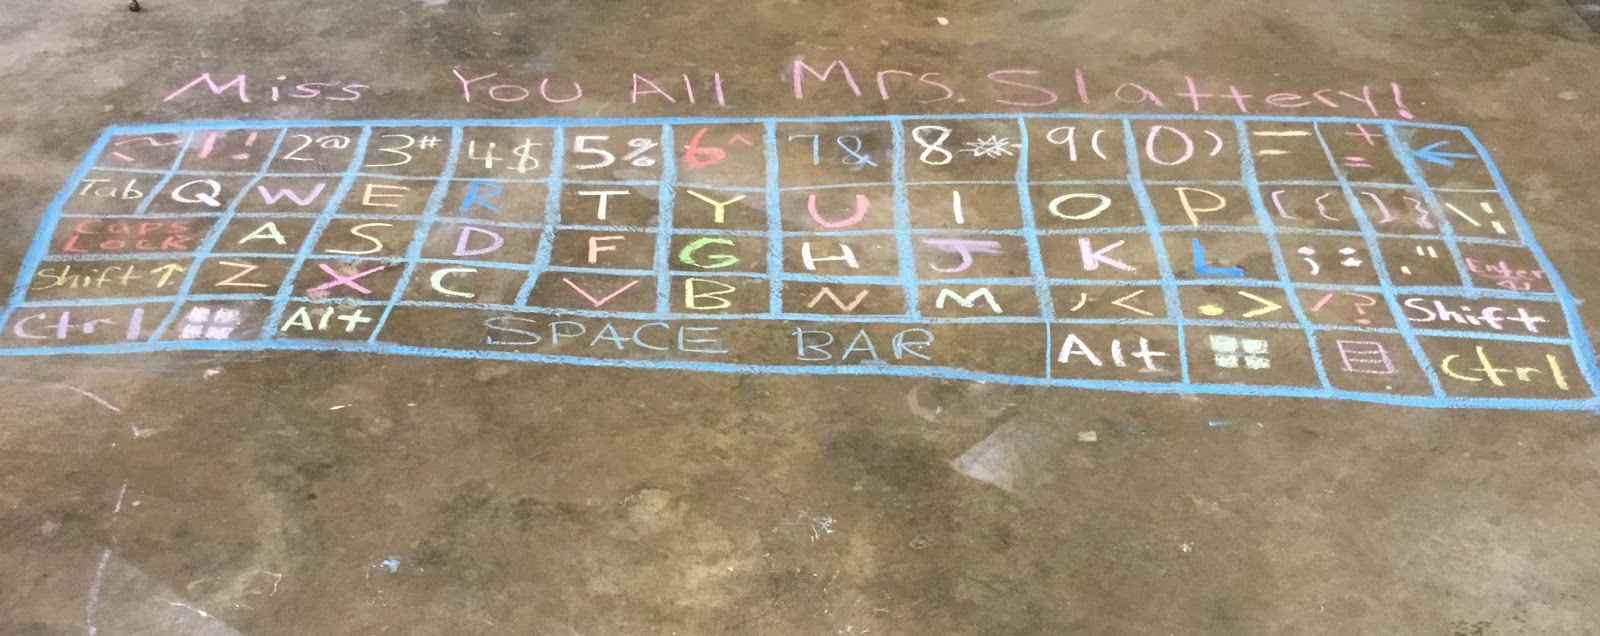 Miss You All Mrs. Slattery!
~ 1! 2@ 3# 4$ 5% 6^ 7& 8* 9( 0) - += ←
Tab Q W E R T Y U I O P [{ ]} \¦
Caps Lock A S D F G H J K L ;: '" Enter
Shift↑ Z X C V B N M ,< .> /? Shift
Ctrl Alt SPACE BAR Alt Ctrl